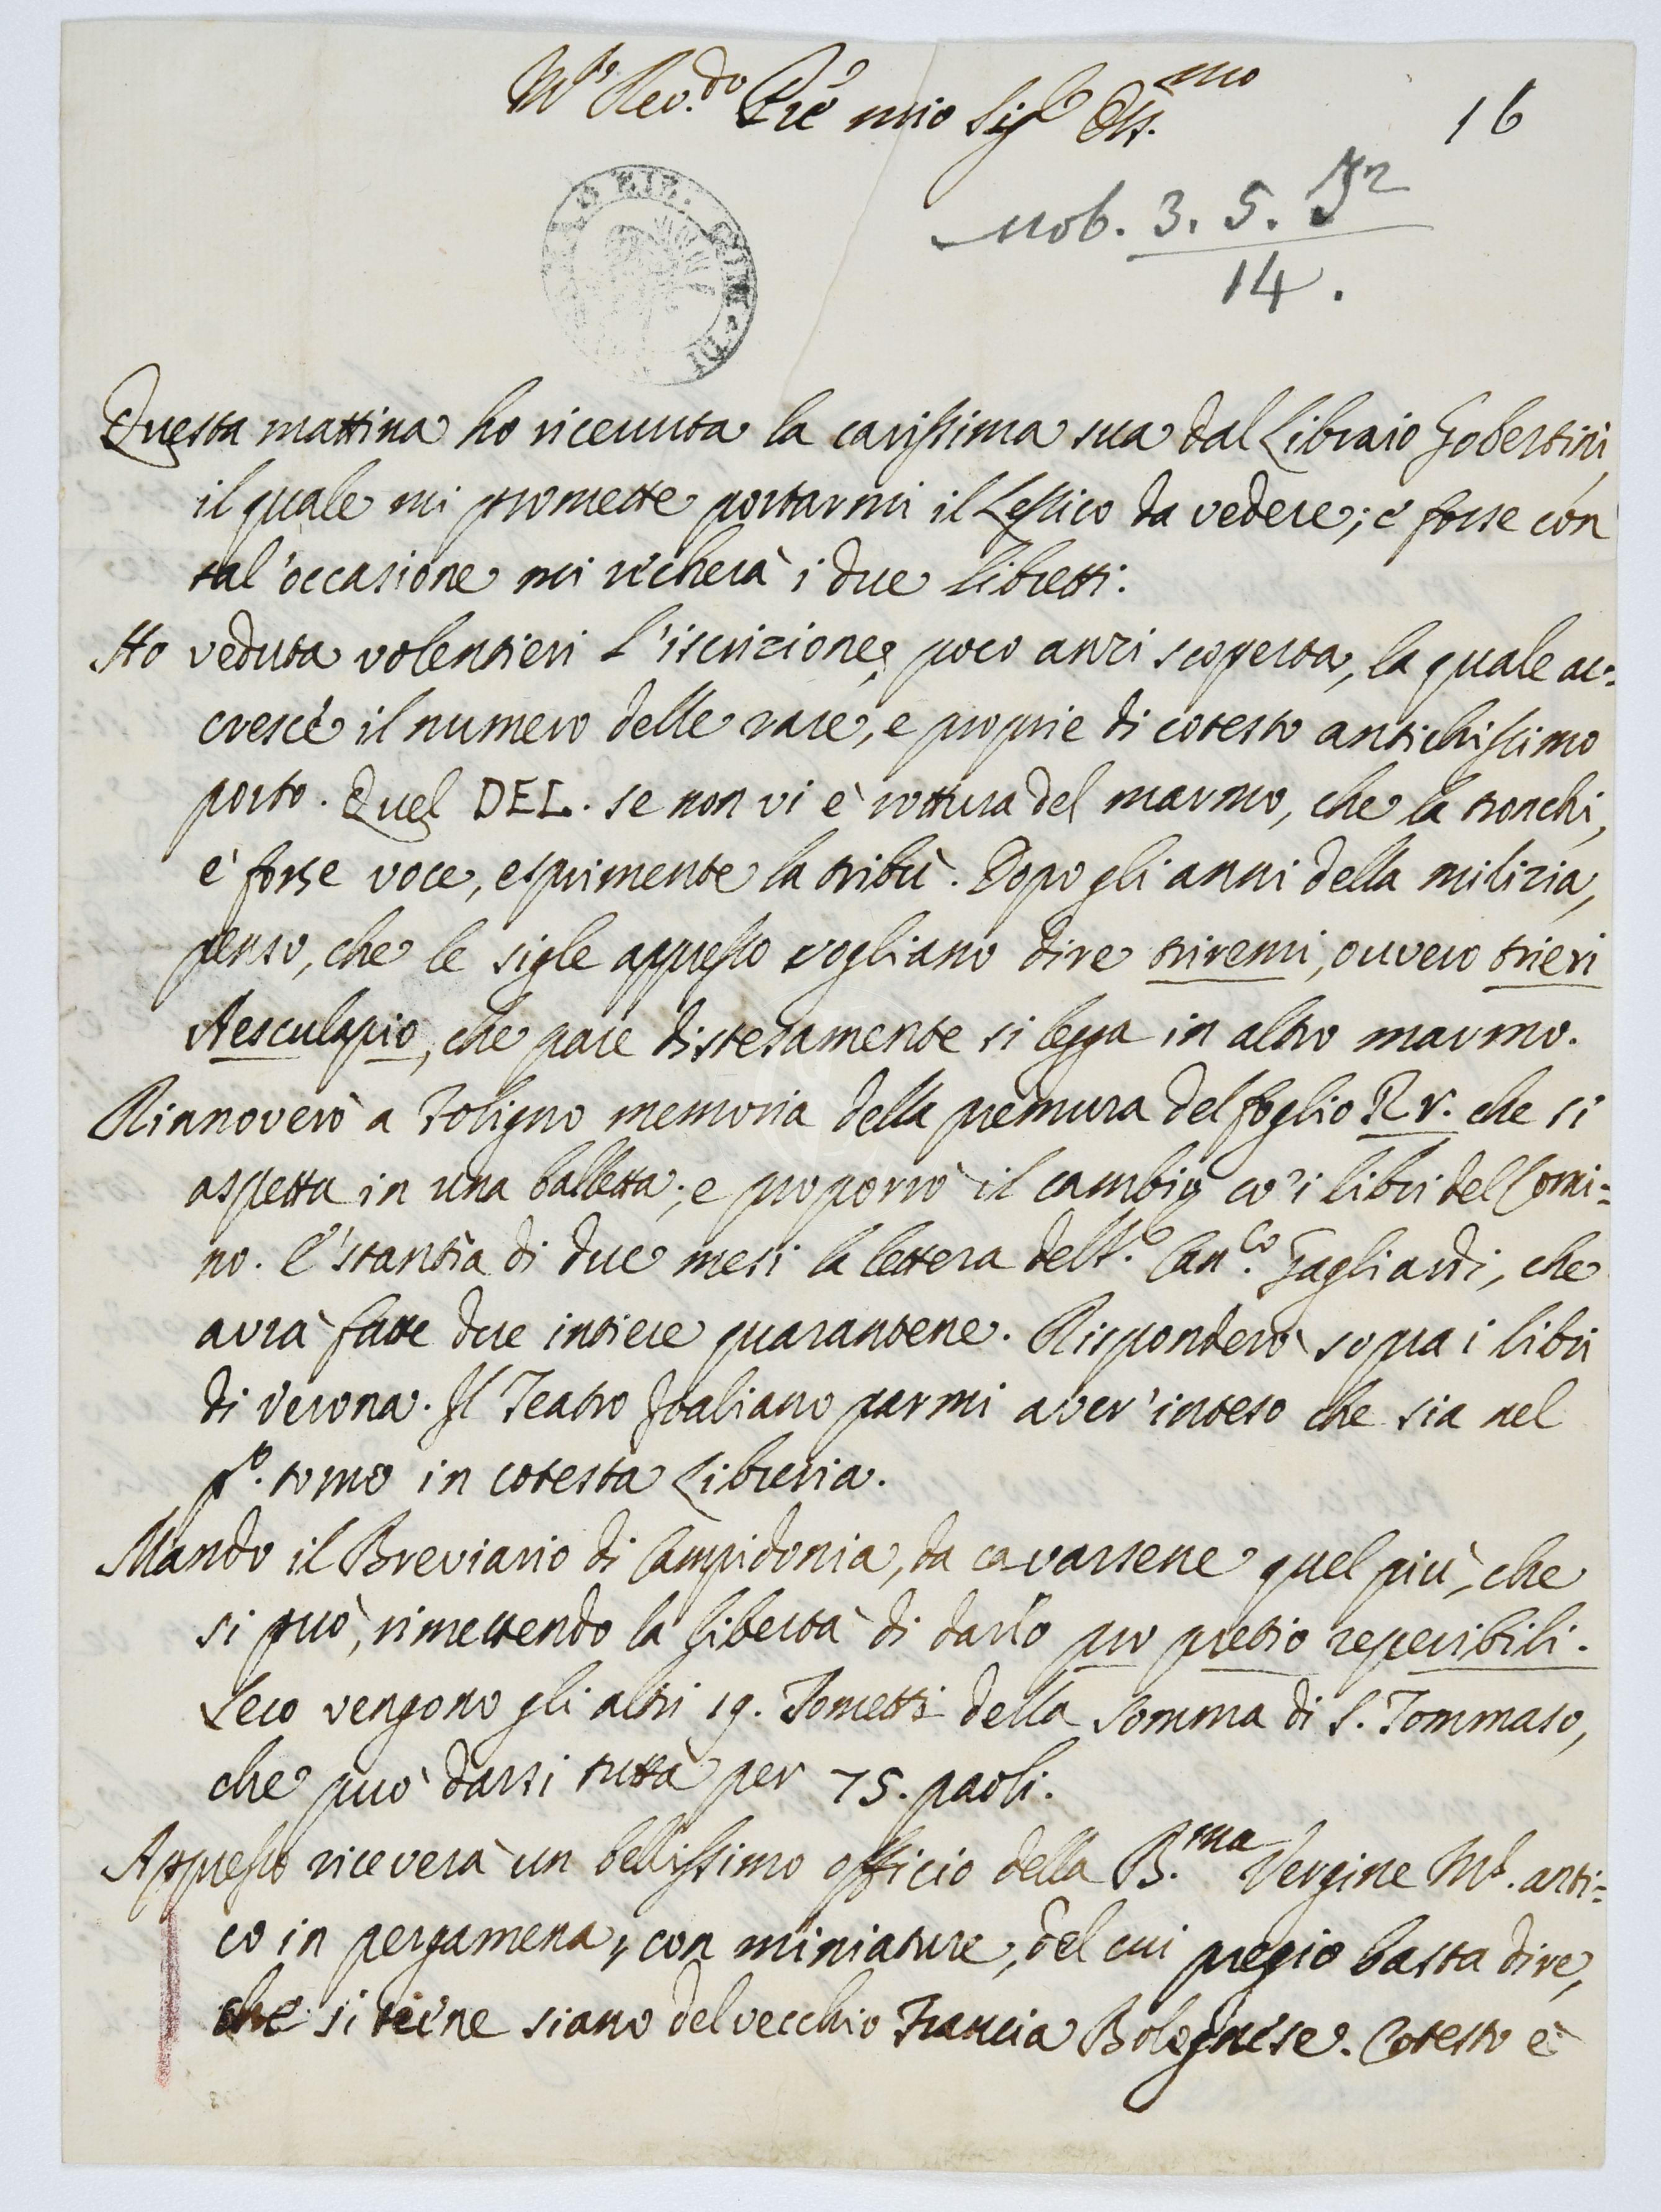 M.to Rev.do P.re mio Sig.re Oss.mo
16
Mob. 3. 5. J2
14.
Questa mattina ho ricevuta la carissima sua dal Libraio Gobertini,
il quale mi promette portarmi il Lessico da vedere; e forse con
tal'occasione mi recherà i due libretti.
Ho veduta volentieri l'iscrizione, poco anzi scoperta, la quale ac=
cresce il numero delle rare, e proprie di cotesto antichissimo
porto. Quel DEL. se non vi è rottura del marmo, che la tronchi,
è forse voce, esprimente la tribù. Dopo gli anni della milizia,
penso, che le sigle appresso vogliano dire triremi, ovvero trieri
Aesculapio, che pare distesamente si legga in altro marmo.
Rinnoverò a Foligno memoria della premura del foglio Rr. che si
aspetta in una balletta; e proporrò il cambio co'i libri del Comi=
no. È stantìa di due mesi la lettera del S.e Can.co Gagliardi, che
avrà fatte due intiere quarantene. Risponderò sopra i libri
di Verona. Il Teatro Italiano parmi aver'inteso che sia nel
p.o tomo in cotesta Libreria.
Mando il Breviario di Campidonia, da cavarsene quel più, che
si può, rimettendo la libertà di darlo pro pretio reperibili.
Seco vengono gli altri 19. Tometti della Somma di S. Tommaso,
che può darsi tutta per 75. paoli.
Appresso riceverà un bellissimo officio della B.ma Vergine Ms. anti=
co in pergamena, con miniature, del cui pregio basta dire,
che si tiene siano del vecchio Francia Bolognese. Cotesto è